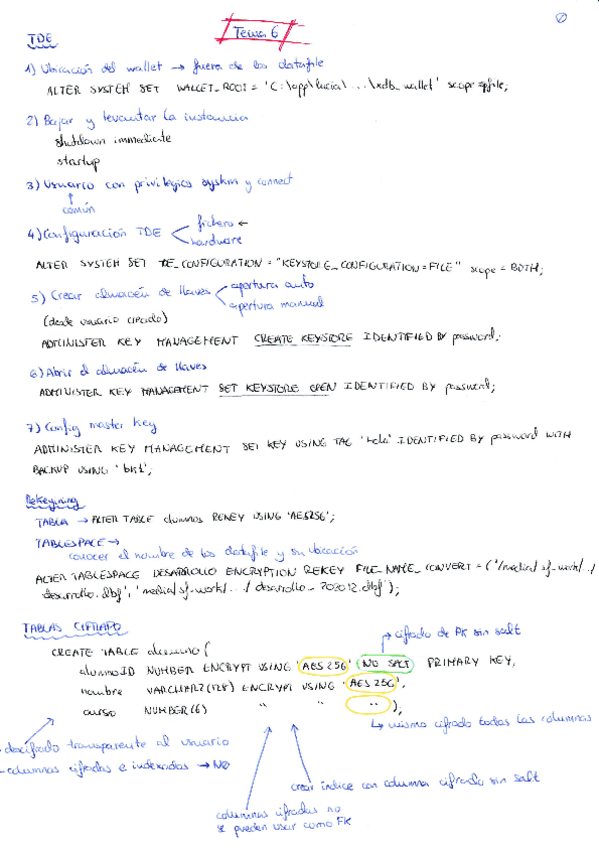 TDE
Tema 6
1) Ubicación del wallet → fuera de los datafile
ALTER SYSTEM SET WALLET_ROOT = 'C:\app\lucia\...\xdb_wallet' scope=spfile;
2) Bajar y levantar la instancia
shutdown immediate
startup
3) Usuario con privilegios syskm y connect
común
4) Configuración TDE
fichero ←
hardware
ALTER SYSTEM SET TDE_CONFIGURATION = "KEYSTORE_CONFIGURATION=FILE" scope = BOTH;
5) Crear almacén de llaves
apertura auto
apertura manual
(desde usuario creado)
ADMINISTER KEY MANAGEMENT CREATE KEYSTORE IDENTIFIED BY password;
6) Abrir el almacén de llaves
ADMINISTER KEY MANAGEMENT SET KEYSTORE OPEN IDENTIFIED BY password;
7) Config master key
ADMINISTER KEY MANAGEMENT SET KEY USING TAG IDENTIFIED BY password WITH
BACKUP USING
Rekeying
TABLA → ALTER TABLE alumnos REKEY USING 'AES256';
TABLESPACE →
conocer el nombre de los datafile y su ubicación
ALTER TABLESPACE DESARROLLO ENCRYPTION REKEY FILE_NAME_CONVERT = ('/media/sf_work/../
desarrollo.dbf', 'media/sf_work/.../desarrollo_202012.dbf');
TABLAS CIFRADO
→ cifrado de PK sin salt
CREATE TABLE alumno (
alumnoID NUMBER ENCRYPT USING 'AES256' NO SALT PRIMARY KEY,
nombre VARCHAR2(128) ENCRYPT USING 'AES256',
curso NUMBER(6) " " " ),
↳ mismo cifrado todas las columnas
- descifrado transparente al usuario
- columnas cifradas e indexadas → NO
crear índice con columna cifrado sin salt
columnas cifradas no
se pueden usar como FK